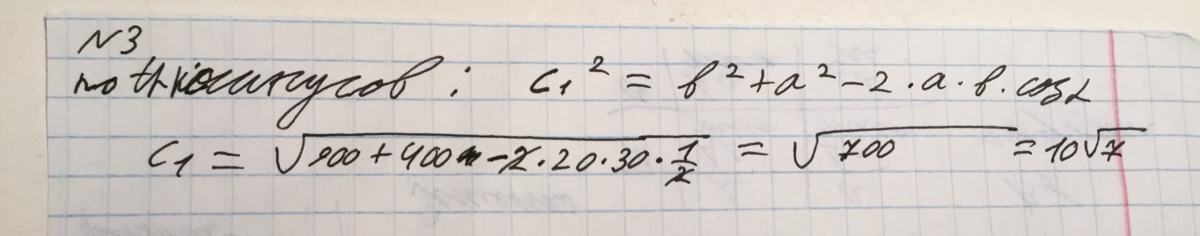 N3
по th косинусов : c₁² = b² + a² − 2 · a · b · cos α
c₁ = √(900 + 400 − 2 · 20 · 30 · 1/2) = √700 = 10√7